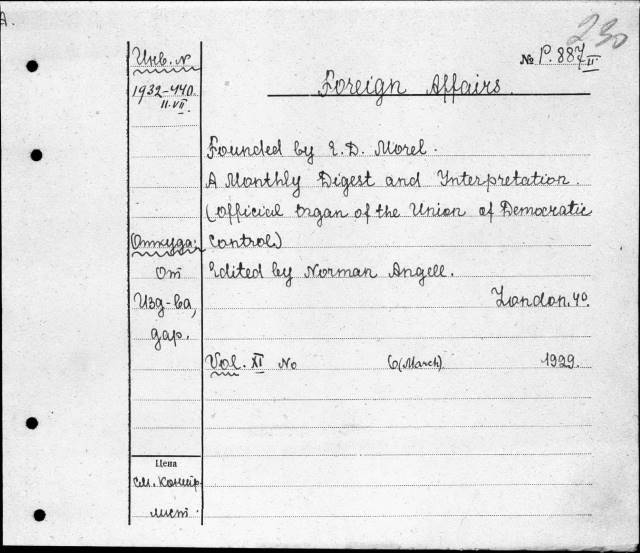 A.
230
Инв. N
№ P. 887 II
1932-440
11.VII.
Foreign Affairs.
Founded by E. D. Morel.
A Monthly Digest and Interpretation.
(Official Organ of the Union of Democratic
Откуда: Control.)
От Edited by Norman Angell.
Изд-ва, London. 4º.
дар.
Vol. XI No 6 (March) 1929.
Цена
см. контр.
лист.